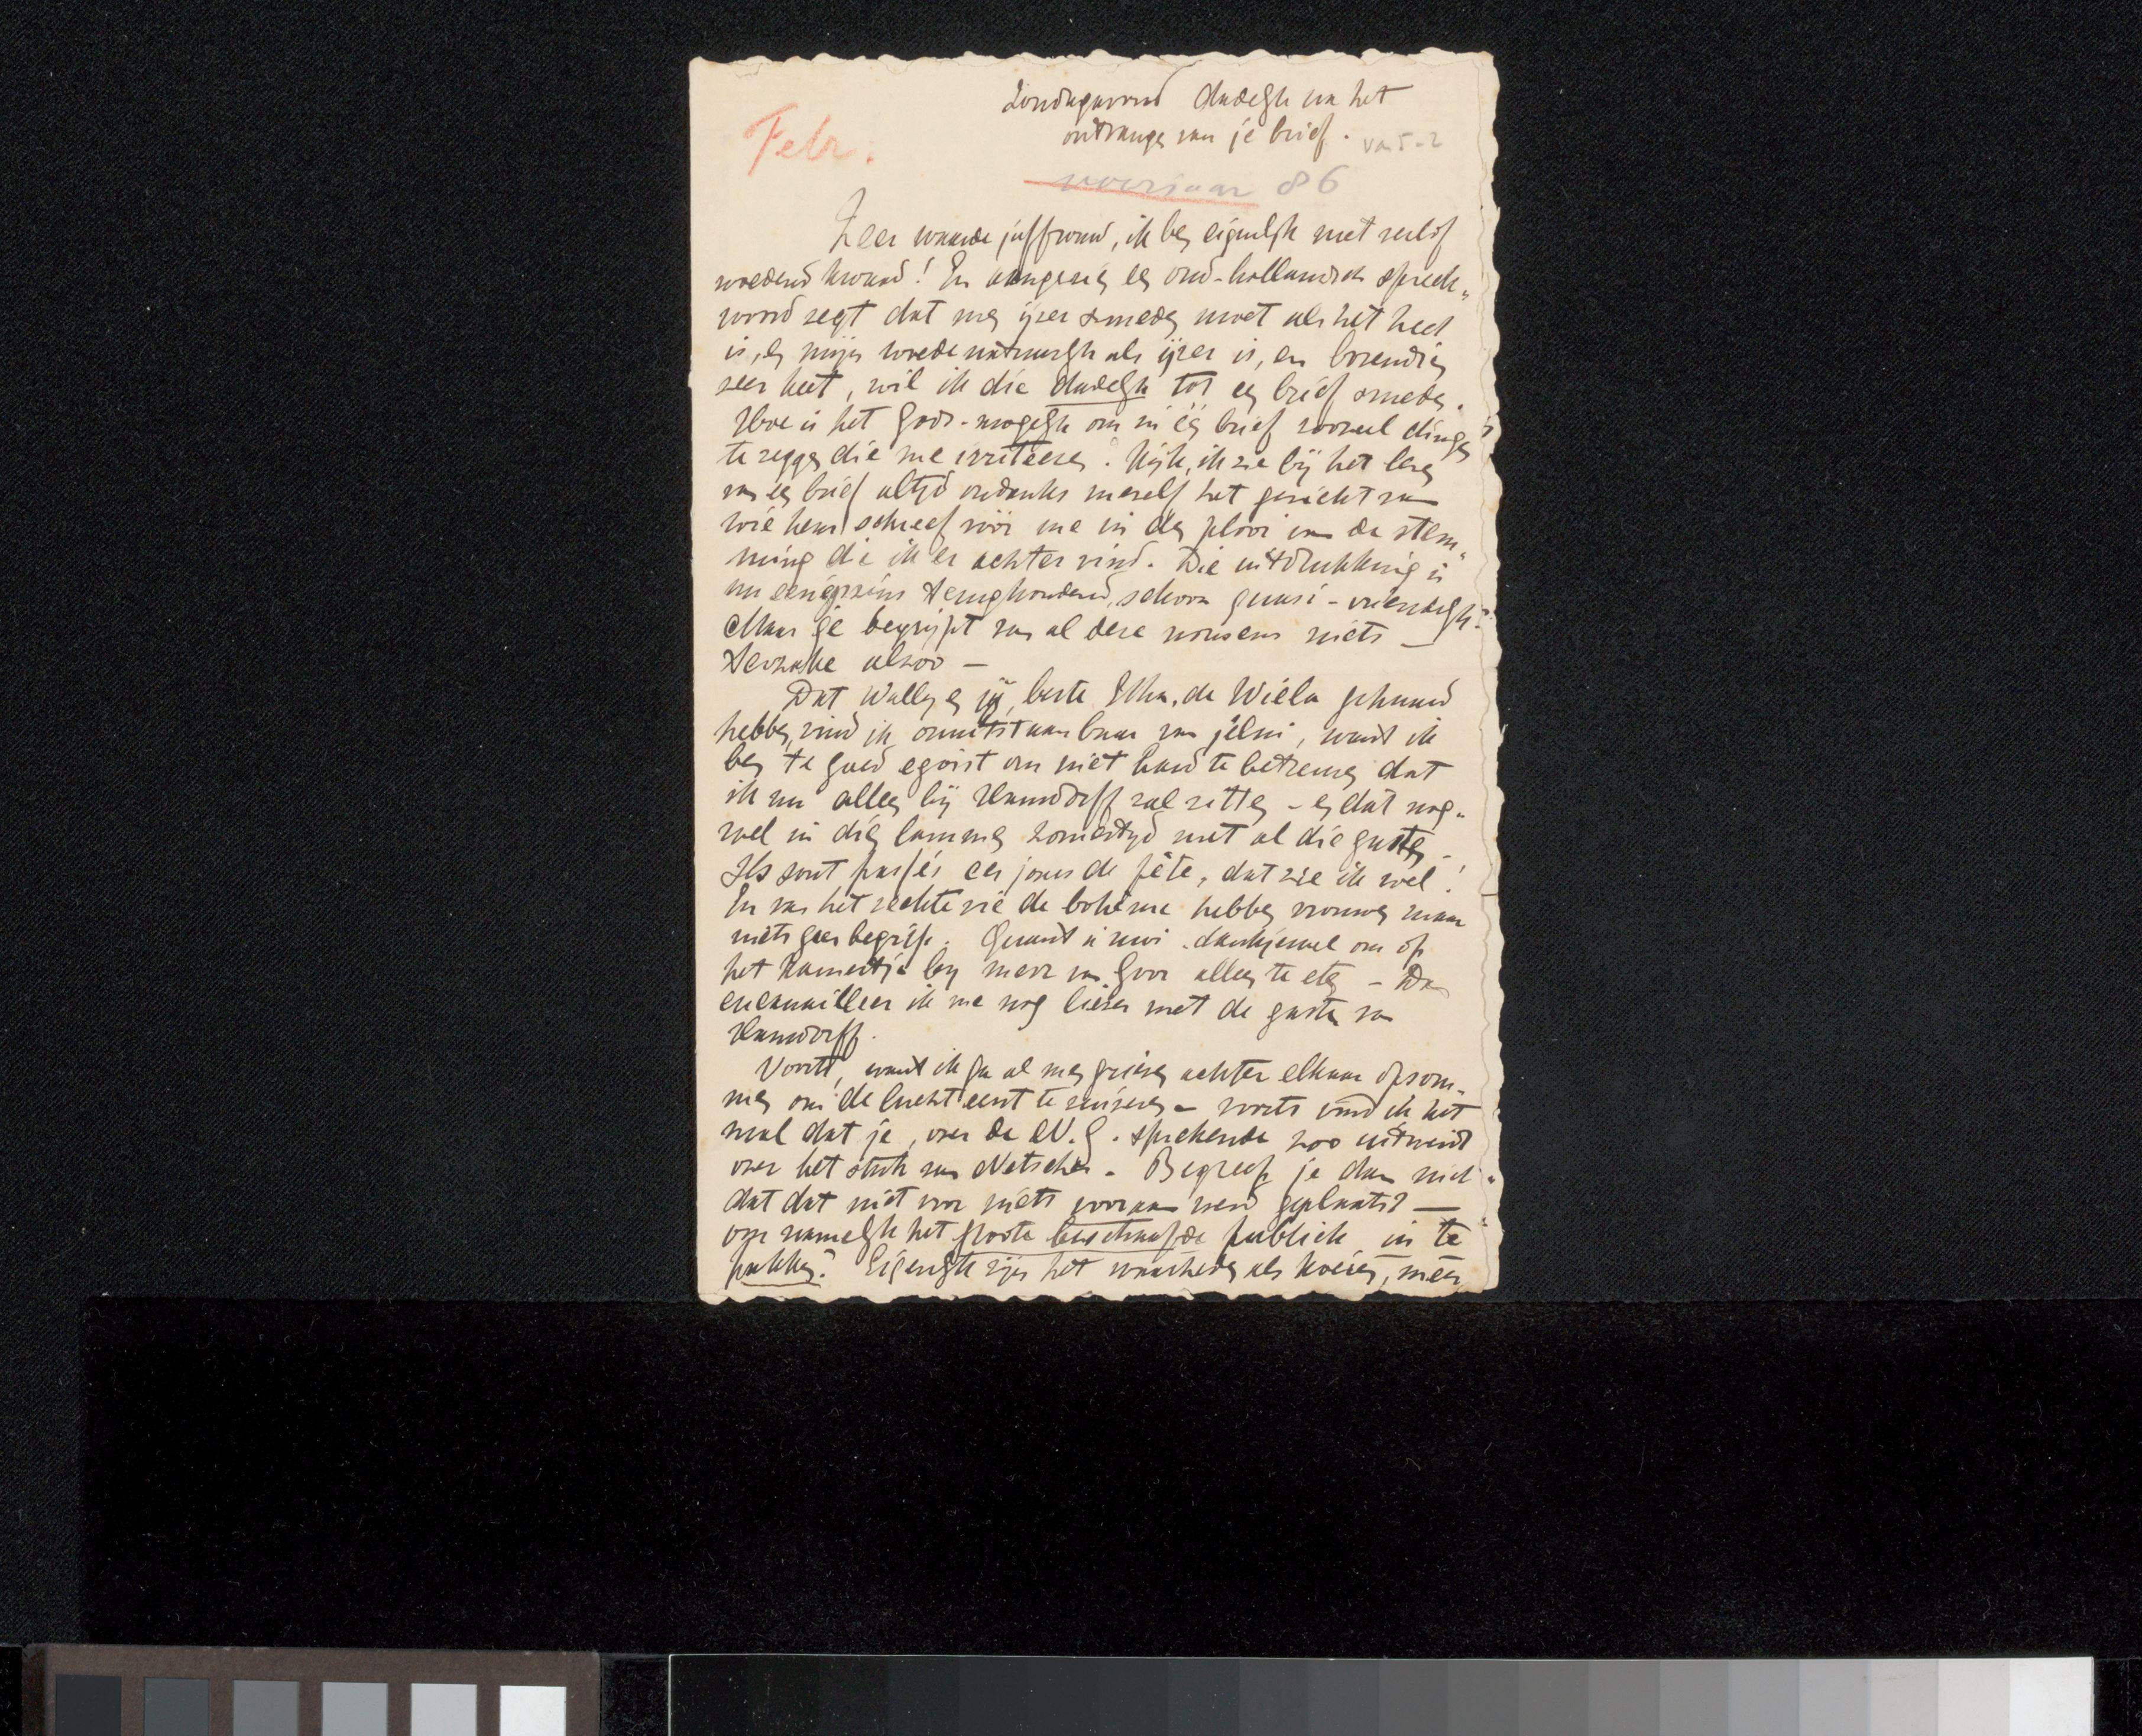 Zondagavond dadelijk na het
ontvangen van je brief. va 5-2
Febr.
voorjaar 86
Zeer waarde juffrouw, ik ben eigenlijk met verlof
woedend kwaad! En aangezien een oud-hollandsch spreek„
woord zegt dat men ijzer smeden moet als het heet
is, en mijn woede natuurlijk als ijzer is, en bovendien
zeer heet, wil ik die dadelijk tot een brief smeden.
Hoe is het Gods-mogelijk om in één brief zooveel dingen
te zeggen die me irriteeren? Kijk, ik zie bij het lezen
van een brief altijd ondanks mezelf het gezicht van
wie hem schreef vóór me in den plooi van de stem„
ming die ik er achter vind. Die uitdrukking is
nu eenigszins terughoudend, schoon quasi-vriendelijk?
Maar je begrijpt van al deze nonsens niets —
Terzake alzoo —
Dat Wally en jij, beste Ilka, de Wiela gehuurd
hebben, vind ik onuitstaanbaar van jelui, want ik
ben te goed egoïst om niet hard te betreuren dat
ik nu alleen bij Hamdorff zal zitten – en dat nog„
wel in dien lammen zomertijd met al die gasten –
Ils sont passés ces jours de fête, dat zie ik wel!
En van het rechte vie de bohème hebben vrouwen maar
niets geen begrip. Quant à moi, dankjewel om op
het kamertje bij mevr van Goor alleen te eten – Dan
encanailleer ik me nog liever met de gasten van
Hamdorff.
Voorts, want ik ga al men grieven achter elkaar opsom„
men om de lucht eerst te zuiveren – voorts vind ik het
mal dat je, over de N.G. sprekende zoo uitweidt
over het stuk van Netscher. Begreep je dan niet
dat dat niet voor niets vooraan werd geplaatst —
om namelijk het groote beschaafde publiek in te
pakken? Eigenlijk zijn het waarheden als koeien, meer